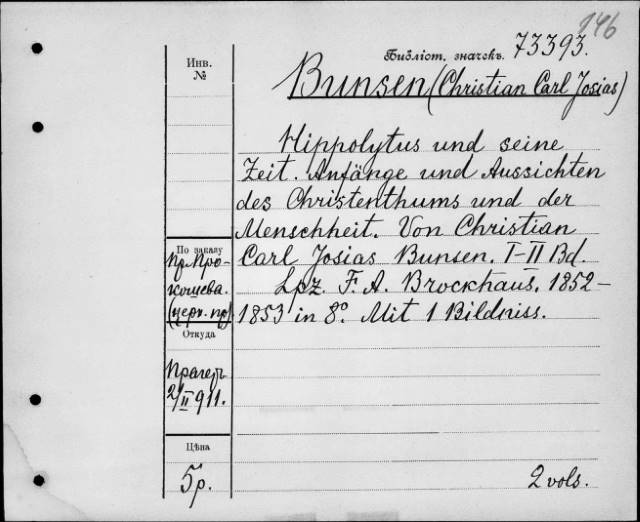 146
Библіот. значекъ 73393.
Инв.
№
Bunsen (Christian Carl Josias)
Hippolytus und seine
Zeit. Anfänge und Aussichten
des Christenthums und der
Menschheit. Von Christian
Carl Josias Bunsen. I-II Bd.
Lpz. F. A. Brockhaus. 1852-
1853 in 8°. Mit 1 Bildniss.
По заказу
Пр. Про-
кошева.
(церк. пр)
Откуда
Прагеръ
2/II 911.
Цѣна
5 р.
2 vols.